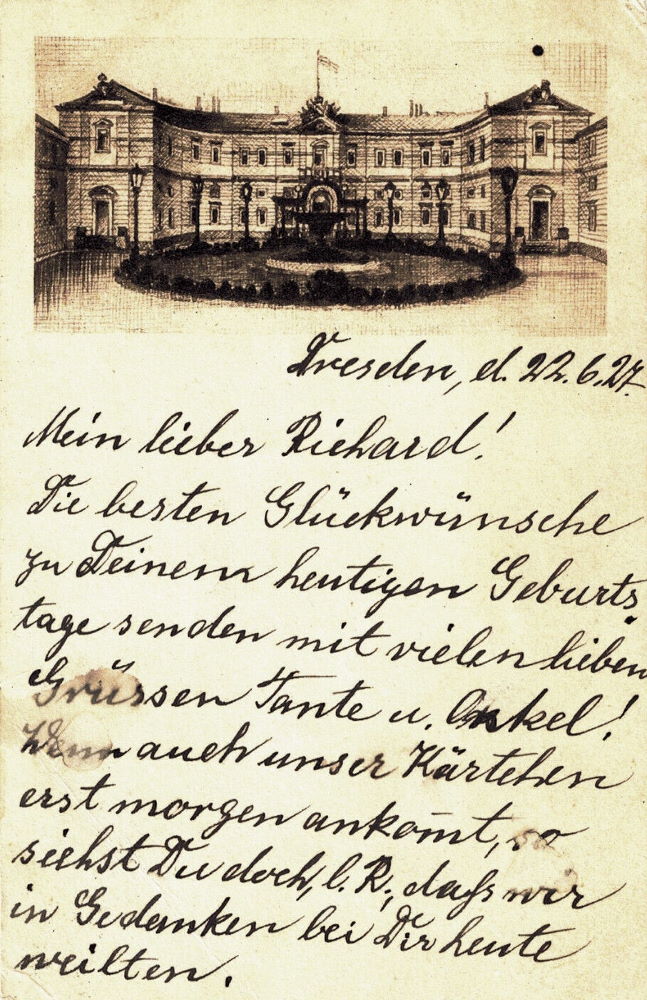 Dresden, d. 22.6.27.
Mein lieber Richard!
Die besten Glückwünsche
zu Deinem heutigen Geburts-
tage senden mit vielen lieben
Grüssen Tante u. Onkel!
Wenn auch unser Kärtchen
erst morgen ankom̅t, so
siehst Du doch, l. R., daſs wir
in Gedanken bei Dir heute
weilten.